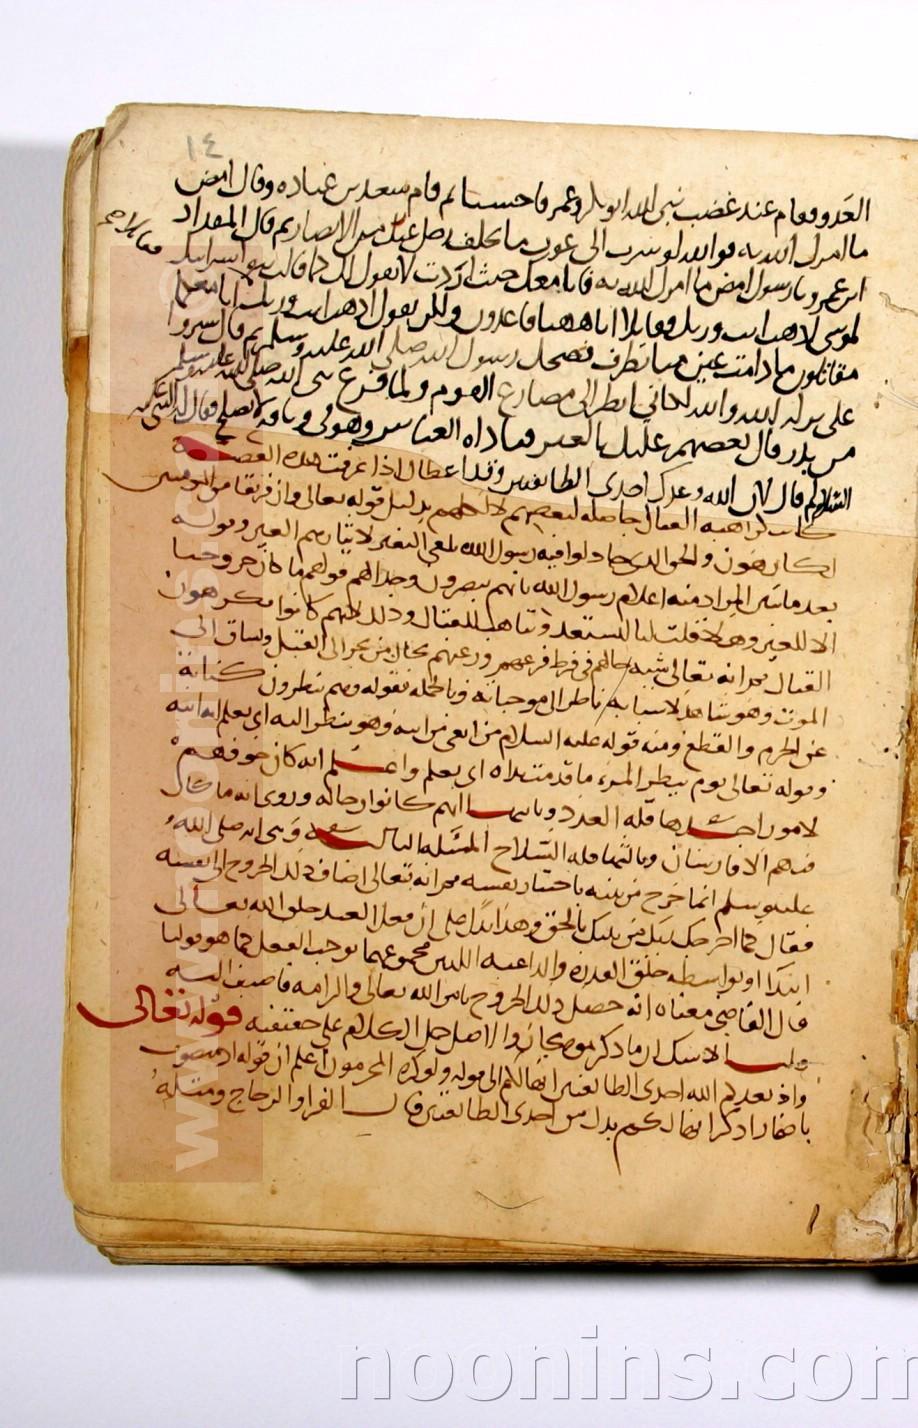 ١٤
العدو فقام عند غضب نبي الله ابو بكر وعمر فاحسنا ثم قام سعد بن عباده وقال امض
ما امرك الله به فو الله لو سرت الى عدن ما تخلف رجل عنك من الانصار ثم قال المقداد
ابن عمرو يا رسول امض ما امرك الله به فانا معك حيث اردت لا نقول لك كما قالت بنو اسرايل
لموسى اذهب انت وربك فقاتلا انا هاهنا قاعدون ولكن نقول اذهب انت وربك انا معكما
مقاتلون ما دامت عين منا تطرف فضحك رسول الله صلى الله عليه وسلم ثم قال سيروا
على بركة الله والله لكاني انظر الى مصارع القوم ولما فرغ نبي الله صلى الله عليه وسلم
من بدر قال بعضهم عليك بالعير فناداه العباس وهو في وثاقه لا يصلح فقال له النبي عليه
السلام لم قال لان الله وعدك احدى الطائفتين وقد اعطاك اذا عرفت هذه القصة
كانت كراهية القتال حاصلة لبعضهم لا لكلهم بدليل قوله تعالى وان فريقا من المومنين
لكارهون والحق الذي جادلوا فيه رسول الله تلقي النفير لايثارهم العير وقوله
بعد ما تبين المراد منه اعلام رسول الله بانهم ينصرون وجدالهم قولهم ما كان خروجنا
الا للعير وهلا قلت لنا لنستعد ونتاهب للقتال وذلك لانهم كانوا يكرهون
القتال ثم انه تعالى شبه حالهم في فرط فزعهم ورعبهم بحال من يجر الى القتل ويساق الى
الموت وهو شاهد لاسبابه ناظر الى موجباته وبالجملة فقوله وهم ينظرون كناية
عن الجزم والقطع ومنه قوله عليه السلام من انتفى من ابنه وهو ينظر اليه اي يعلم انه ابنه
وقوله تعالى يوم ينظر المرء ما قدمت يداه اي يعلم واعلم انه كان خوفهم
لامور احدها قلة العدد وثانيها انهم كانوا رجالة وروي انه ما كان
فيهم الا فارسان وثالثها قلة السلاح المسئلة الثالثة روي انه صلى الله
عليه وسلم انما خرج من بيته باختيار نفسه ثم انه تعالى اضاف ذلك الخروج الى نفسه
فقال كما اخرجك ربك من بيتك بالحق وهذا يدل على ان فعل العبد خلق الله تعالى
ابتداء او بواسطة خلق القدرة والداعية اللذين مجموعهما يوجب الفعل كما هو قولنا
قال القاضي معناه انه حصل ذلك الخروج بامر الله تعالى والزامه فاضيف اليه
قلنا لا شك ان ما ذكرتموه مجاز والاصل حمل الكلام على حقيقته قوله تعالى
واذ يعدكم الله احدى الطائفتين انها لكم الى قوله ولو كره المجرمون اعلم ان قوله اذ منصوب
باضمار اذكر انها لكم بدل من احدى الطائفتين قال الفراء والزجاج ومثله
www.noonins.com
noonins.com